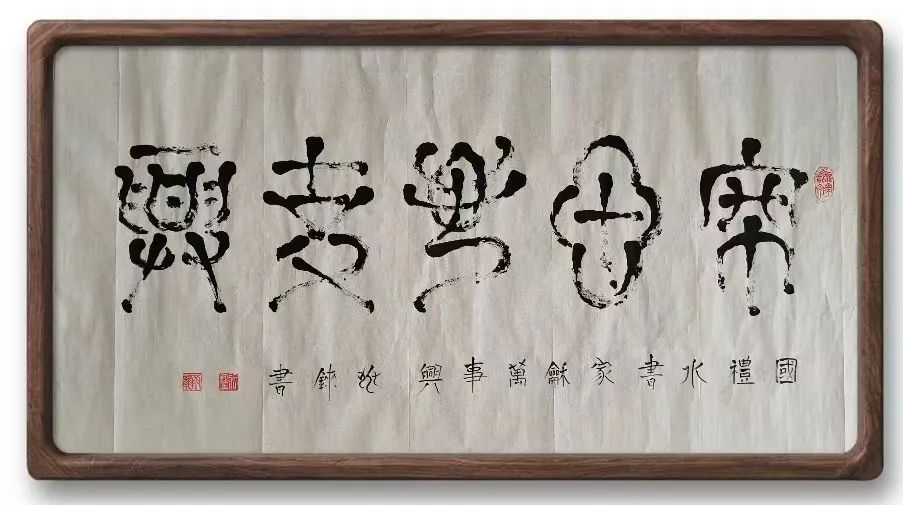 家龢萬事興
國禮水書家龢萬事興 書